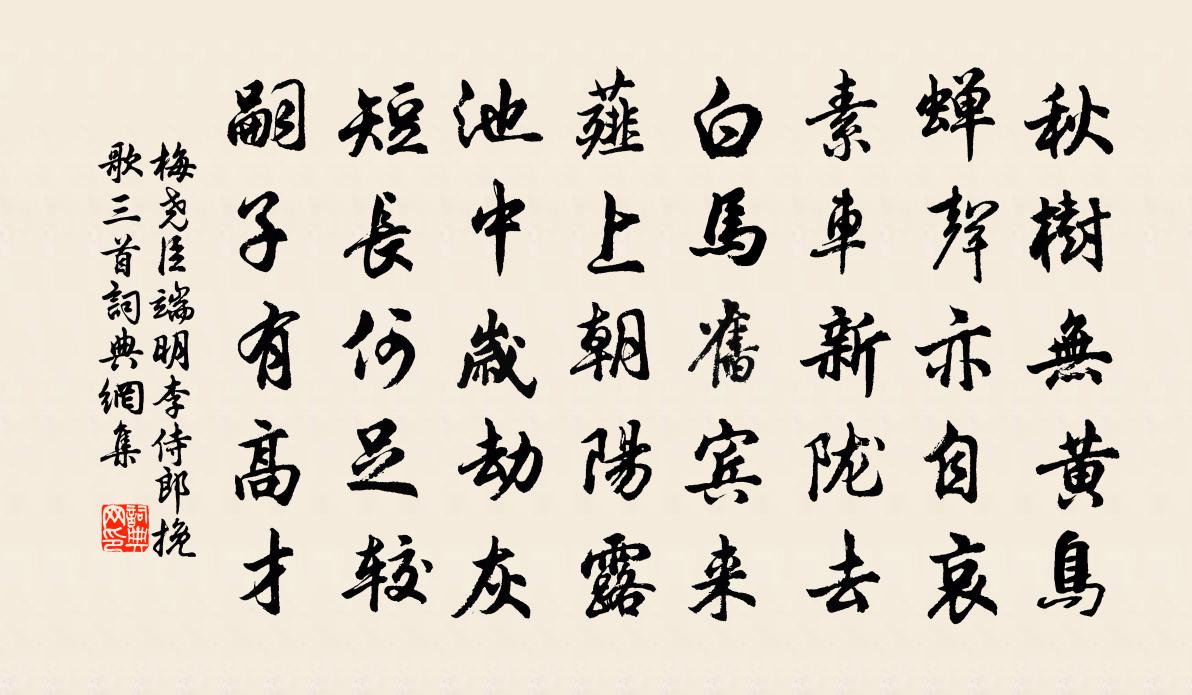 秋樹無黃鳥
蝉聲亦自哀
素車新陇去
白馬舊宾来
薤上朝陽露
池中歲劫灰
短長何足较
嗣子有高才
梅堯臣端明李侍郎挽
歌三首詞典網集
詞典
网印